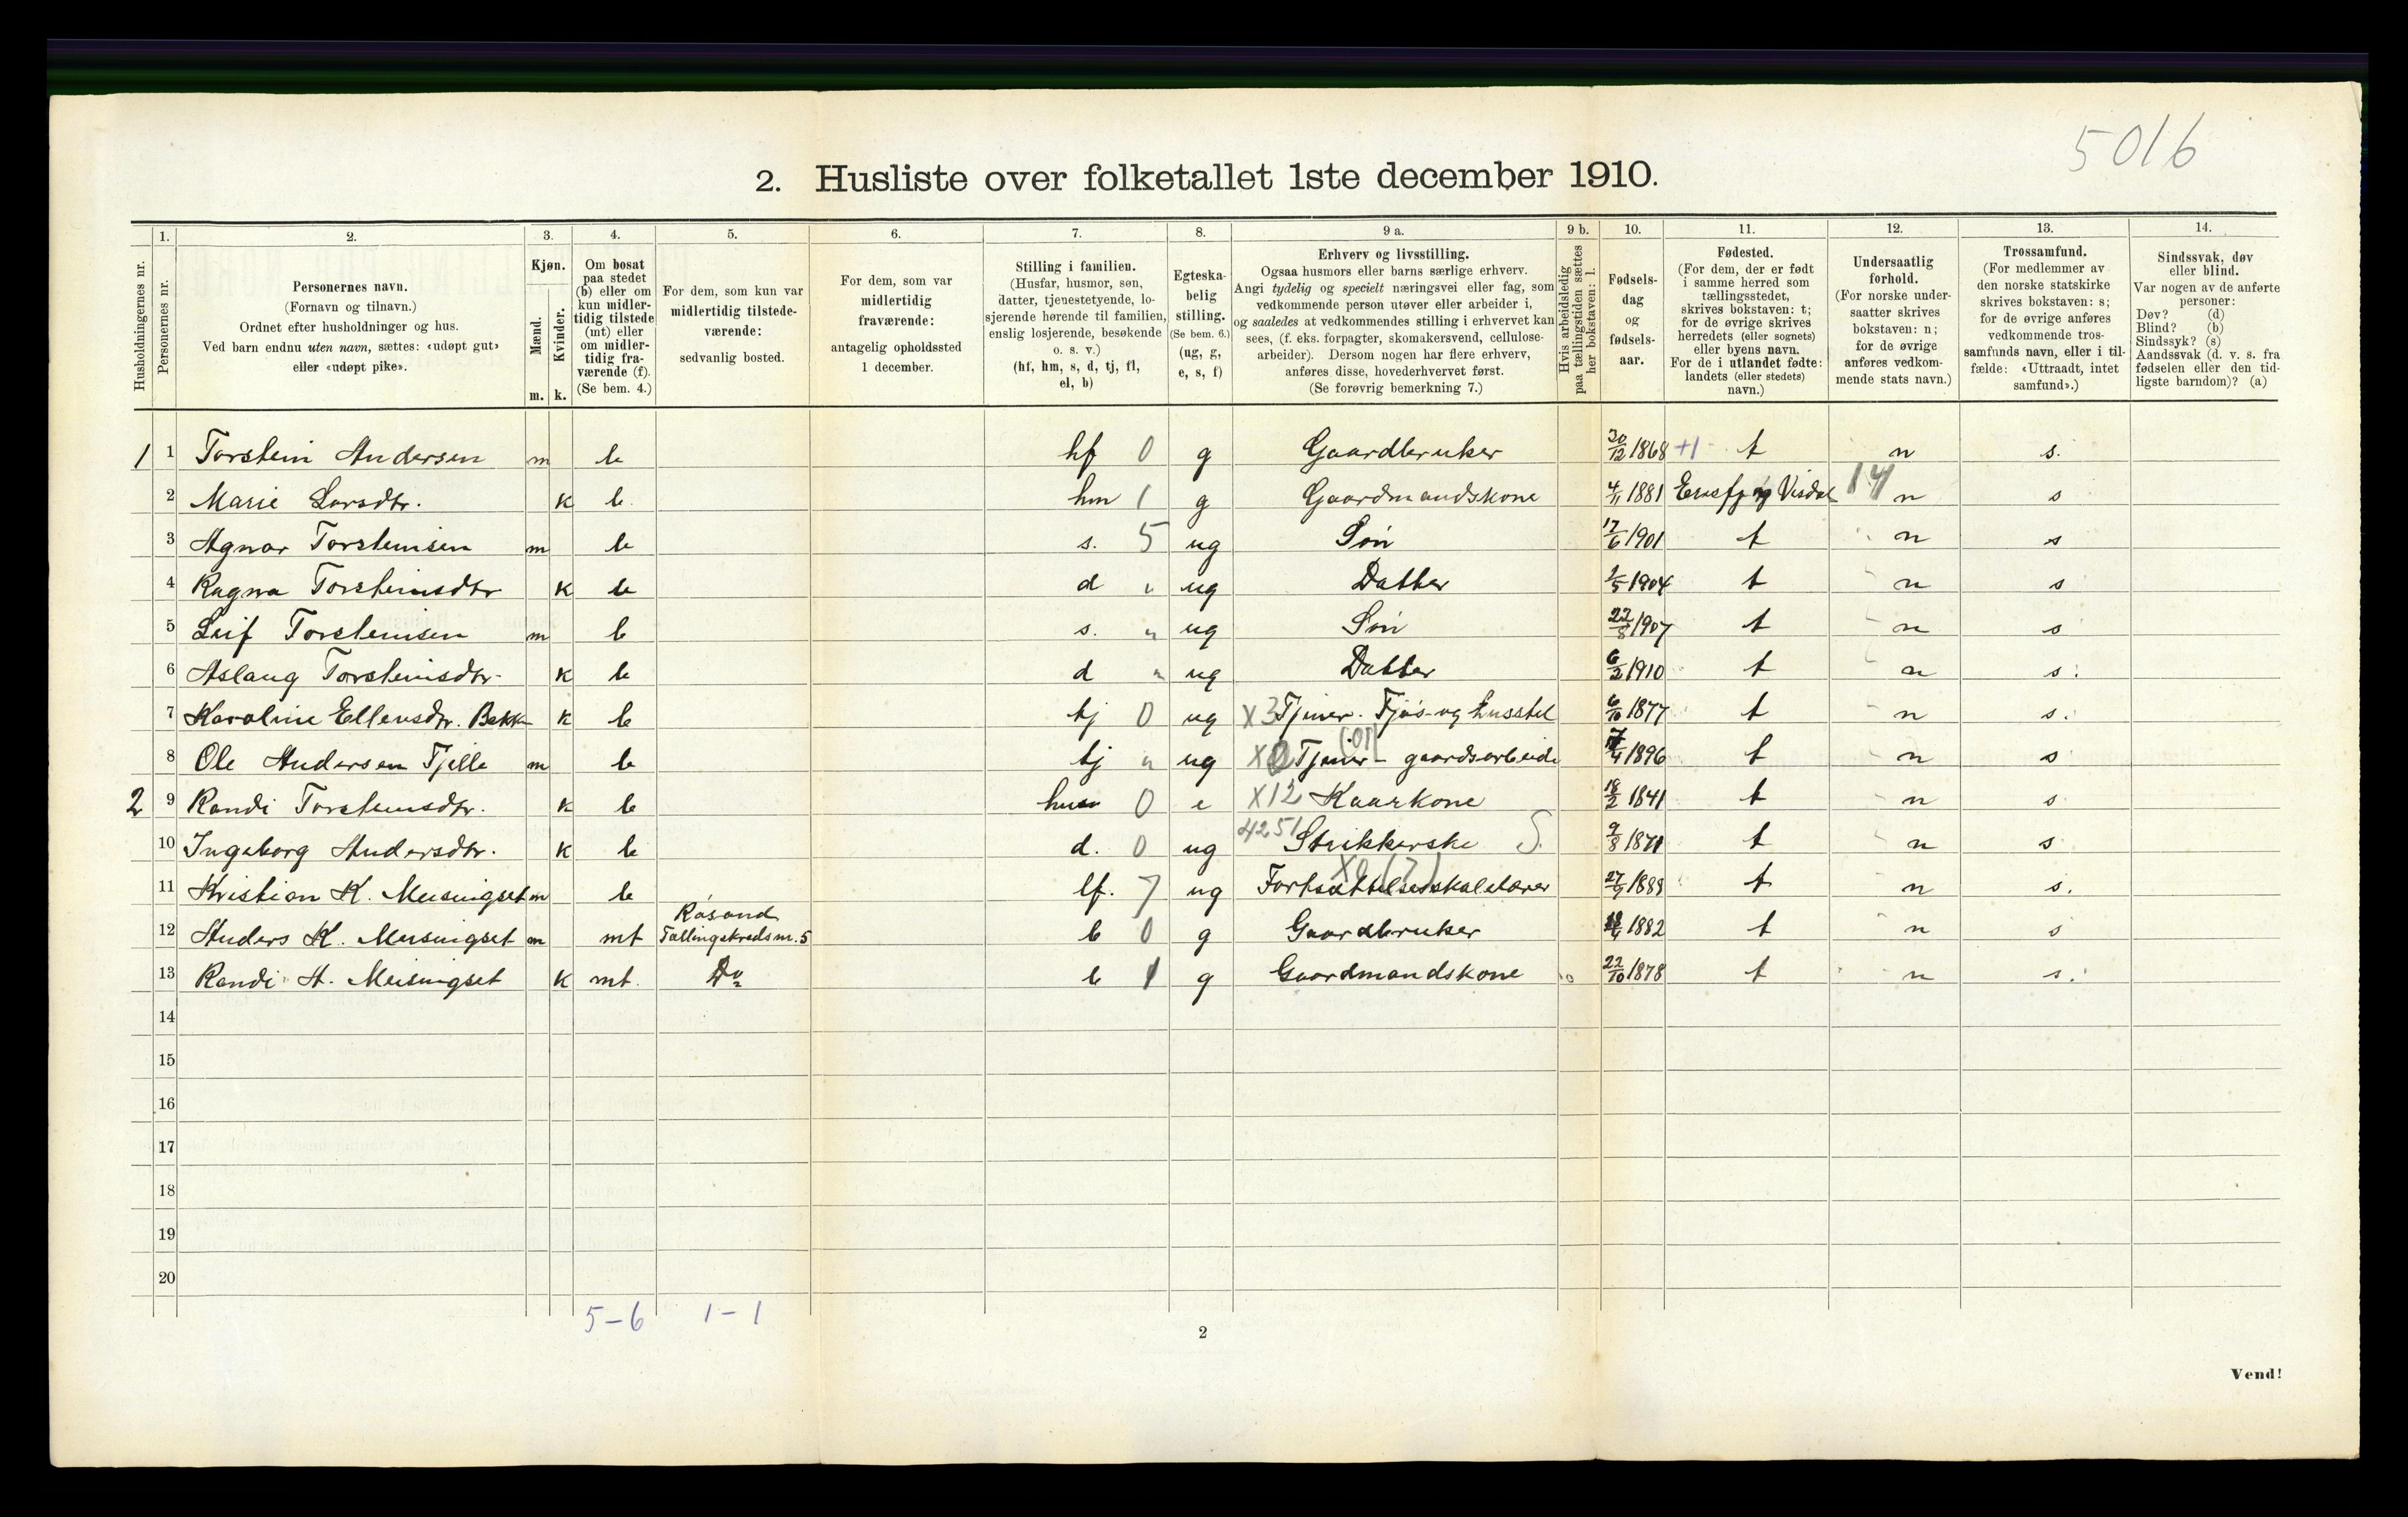 5016
2. Husliste over folketallet 1ste december 1910.
Husholdningernes nr.
1. Personernes nr.
2. Personernes navn.
(Fornavn og tilnavn.)
Ordnet efter husholdninger og hus.
Ved barn endnu uten navn, sættes: «udøpt gut»
eller «udøpt pike».
3. Kjøn.
Mænd. Kvinder.
m. k.
4. Om bosat
paa stedet
(b) eller om
kun midler-
tidig tilstede
(mt) eller
om midler-
tidig fra-
værende (f).
(Se bem. 4.)
5. For dem, som kun var
midlertidig tilstede-
værende:
sedvanlig bosted.
6. For dem, som var
midlertidig
fraværende:
antagelig opholdssted
1 december.
7. Stilling i familien.
(Husfar, husmor, søn,
datter, tjenestetyende, lo-
sjerende hørende til familien,
enslig losjerende, besøkende
o. s. v.)
(hf, hm, s, d, tj, fl,
el, b)
8. Egteska-
belig
stilling.
(Se bem. 6.)
(ug, g,
e, s, f)
9 a. Erhverv og livsstilling.
Ogsaa husmors eller barns særlige erhverv.
Angi tydelig og specielt næringsvei eller fag, som
vedkommende person utøver eller arbeider i,
og saaledes at vedkommendes stilling i erhvervet kan
sees, (f. eks. forpagter, skomakersvend, cellulose-
arbeider). Dersom nogen har flere erhverv,
anføres disse, hovederhvervet først.
(Se forøvrig bemerkning 7.)
9 b. Hvis arbeidsledig
paa tællingstiden sættes
her bokstaven: l.
10. Fødsels-
dag
og
fødsels-
aar.
11. Fødested.
(For dem, der er født
i samme herred som
tællingsstedet,
skrives bokstaven: t;
for de øvrige skrives
herredets (eller sognets)
eller byens navn.
For de i utlandet fødte:
landets (eller stedets)
navn.)
12. Undersaatlig
forhold.
(For norske under-
saatter skrives
bokstaven: n;
for de øvrige
anføres vedkom-
mende stats navn.)
13. Trossamfund.
(For medlemmer av
den norske statskirke
skrives bokstaven: s;
for de øvrige anføres
vedkommende tros-
samfunds navn, eller i til-
fælde: «Uttraadt, intet
samfund».)
14. Sindssvak, døv
eller blind.
Var nogen av de anførte
personer:
Døv? (d)
Blind? (b)
Sindssyk? (s)
Aandssvak (d. v. s. fra
fødselen eller den tid-
ligste barndom)? (a)
1 1 Torstein Andersen m b hf 0 g Gaardbruker 30/12 1868 +1 t n s.
2 Marie Larsdtr. k b hm 1 g Gaardmandskone 4/11 1881 Eresfj. og Visdal 14 n s
3 Agnar Torsteinsen m b s. 5 ug Søn 17/6 1901 t n s
4 Ragna Torsteinsdtr k b d " ug Datter 1/5 1904 t n s
5 Leif Torsteinsen m b s. " ug Søn 22/8 1907 t n s
6 Aslaug Torsteinsdtr. k b d " ug Datter 6/2 1910 t n s.
7 Karoline Ellensdtr. Bekk k b tj 0 ug X3 Tjener. Fjøs- og husstel 6/10 1877 t n s.
8 Ole Andersen Fjelle m b tj " ug Tjener - gaardsarbeide 1896 t n s
2 9 Randi Torsteinsdtr. k b hm 0 e X12 Kaarkone 18/2 1841 t n s
10 Ingeborg Andersdtr. k b d. 0 ug 4251 Strikkerske S. 9/8 1871 t n s
11 Kristian K. Meisingset m b lf. 7 ug X0 (7) Fortsættelsesskolelærer 27/9 1889 t n s.
12 Anders K. Meisingset m mt Røsand Tællingskreds nr. 5 b 0 g Gaardbruker 1882 t n s
13 Randi A. Meisingset k mt. Do b 1 g Gaardmandskone 22/10 1878 t n s.
14
15
16
17
18
19
20
5-6 1-1
2
Vend!